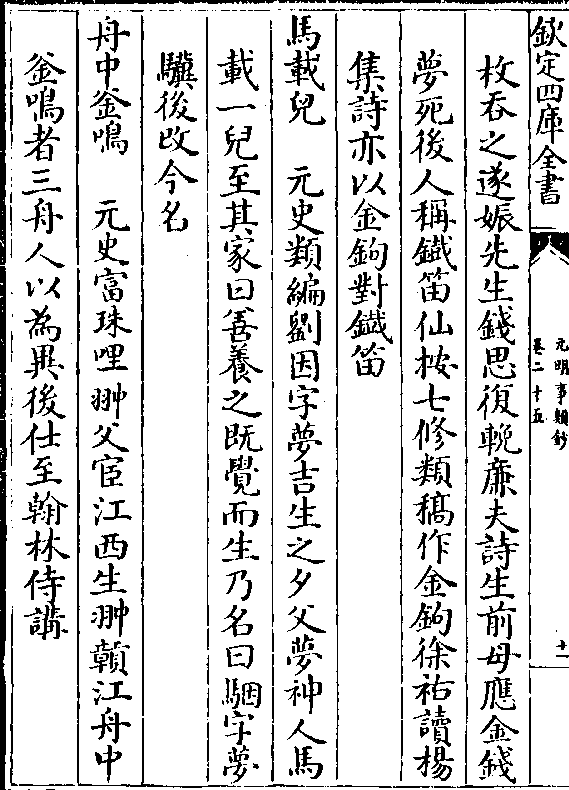 欽定四庫全書
元明事類鈔
卷二十五
十一
枚吞之遂娠先生錢思復輓廉夫詩生前母應金錢
夢死後人稱鐵笛仙按七修類稿作金鉤徐祐讀楊
集詩亦以金鉤對鐵笛
馬載兒　元史類編劉因字夢吉生之夕父夢神人馬
載一兒至其家曰善養之既覺而生乃名曰駰字夢
驥後改今名
舟中釜鳴　元史富珠哩翀父宦江西生翀贛江舟中
釜鳴者三舟人以為異後仕至翰林侍講